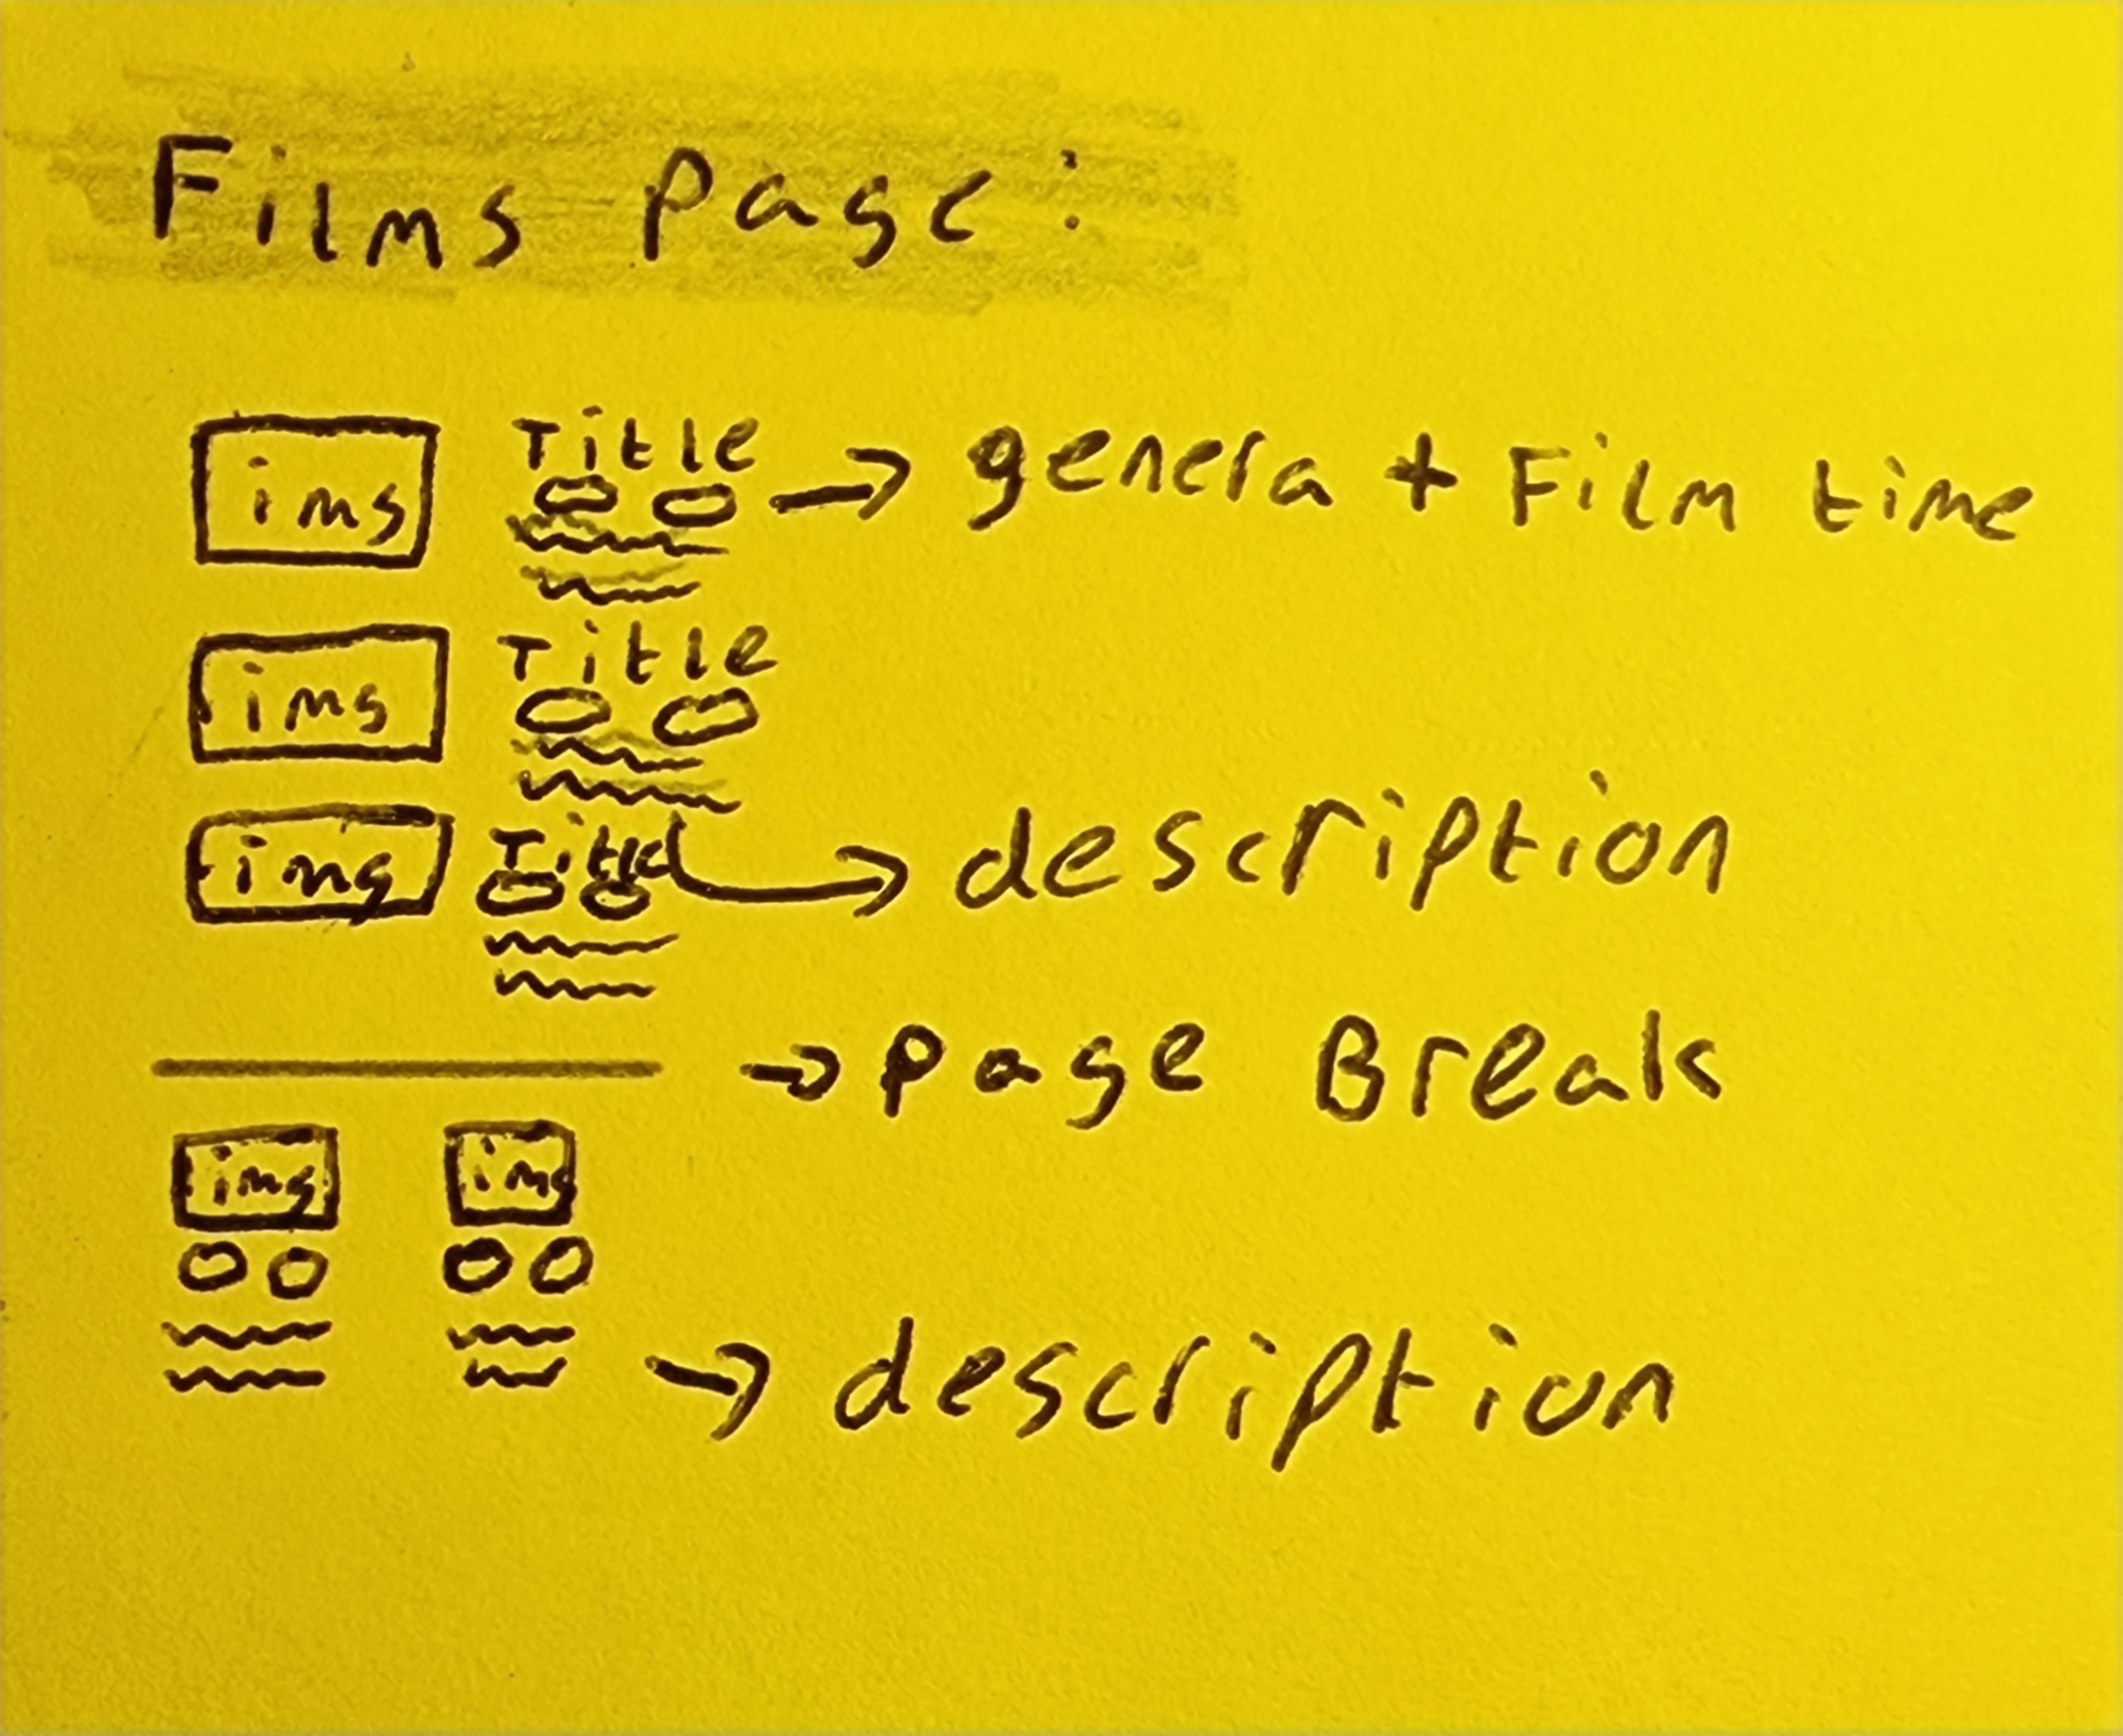 Films page:
img Title → genera + Film time
img Title
img Title → description
→ page Break
img img
→ description